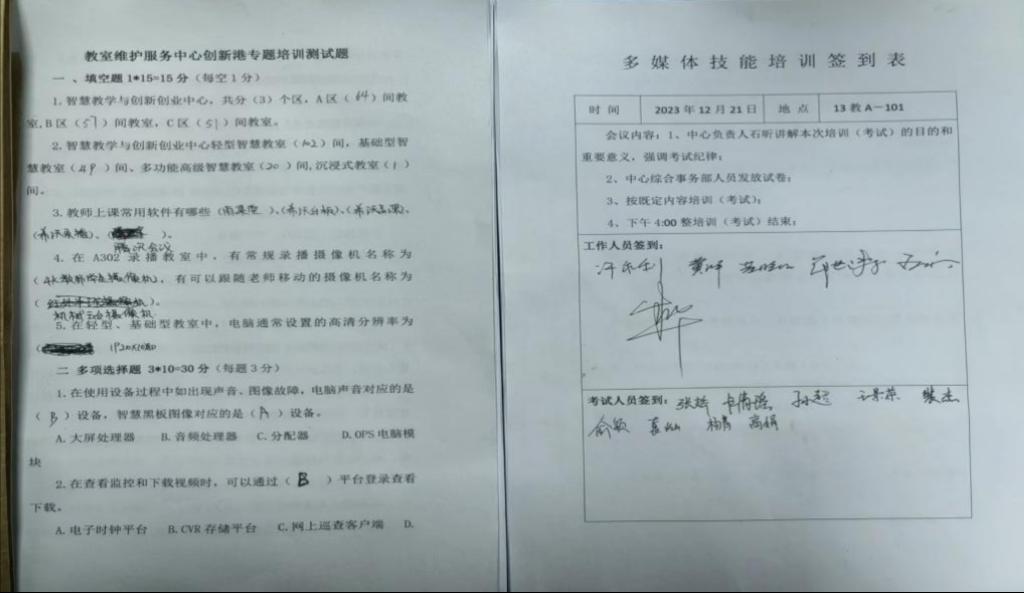 教室维护服务中心创新港专题培训测试题
一 、填空题 1*15=15 分（每空 1 分）
1.智慧教学与创新创业中心，共分（3）个区，A 区（64）间教
室,B 区（57）间教室，C 区（51）间教室。
2.智慧教学与创新创业中心轻型智慧教室（102）间，基础型智
慧教室（49）间、多功能高级智慧教室（20）间,沉浸式教室（1）
间。
3.教师上课常用软件有哪些（雨课堂）、（希沃白板）、（希沃易课）、
（希沃录播）、（ ）。
腾讯会议
4. 在 A302 录播教室中，有常规录播摄像机名称为
（ 摄像机），有可以跟随老师移动的摄像机名称为
（ ）。
机械云台摄像机
5.在轻型、基础型教室中，电脑通常设置的高清分辨率为
（ 1920X1080
二 多项选择题 3*10=30 分（每题 3 分）
1.在使用设备过程中如出现声音、图像故障，电脑声音对应的是
（ B ）设备，智慧黑板图像对应的是（ A ）设备。
A.大屏处理器 B.音频处理器 C.分配器 D.OPS 电脑模
块
2.在查看监控和下载视频时，可以通过（ B ）平台登录查看
下载。
A.电子时钟平台 B.CVR 存储平台 C.网上巡查客户端 D.
多媒体技能培训签到表
时 间 2023 年 12 月 21 日 地 点 13 教 A－101
会议内容：1、中心负责人石昕讲解本次培训（考试）的目的和
重要意义，强调考试纪律；
2、中心综合事务部人员发放试卷；
3、按既定内容培训（考试）；
4、下午 4:00 整培训（考试）结束；
工作人员签到：
考试人员签到： 孙超
俞敏 杨青 高娟